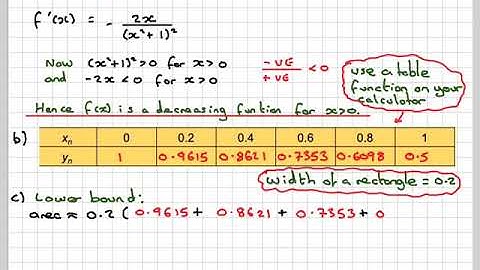 f'(x) = - 2x / (x²+1)²
Now (x²+1)² > 0 for x > 0
and -2x < 0 for x > 0
-VE / +VE < 0
use a table
function on your
calculator
Hence f(x) is a decreasing funtion for x>0.
b) xₙ 0 0.2 0.4 0.6 0.8 1
yₙ 1 0.9615 0.8621 0.7353 0.6098 0.5
width of a rectangle = 0.2
c) Lower bound:
area ≈ 0.2 ( 0.9615 + 0.8621 + 0.7353 + 0